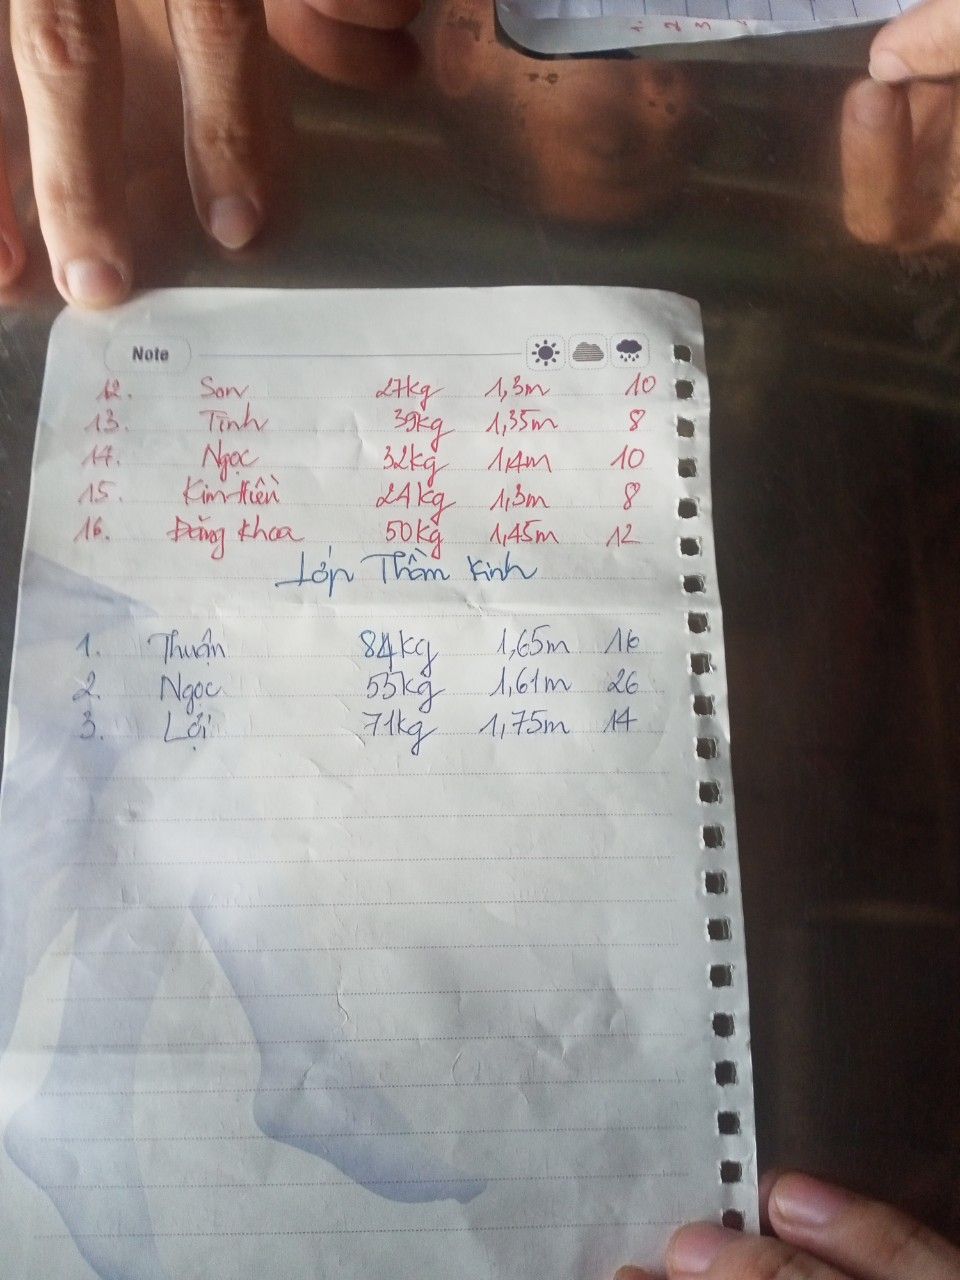 1. 2 3
Note
12. Sơn 27kg 1,3m 10
13. Tĩnh 39kg 1,35m 8
14. Ngọc 32kg 1,4m 10
15. Kim Hiền 24kg 1,3m 8
16. Đăng Khoa 50kg 1,45m 12
Lớp Thầm Kinh
1. Thuận 84kg 1,65m 16
2. Ngọc 55kg 1,61m 26
3. Lợi 71kg 1,75m 14